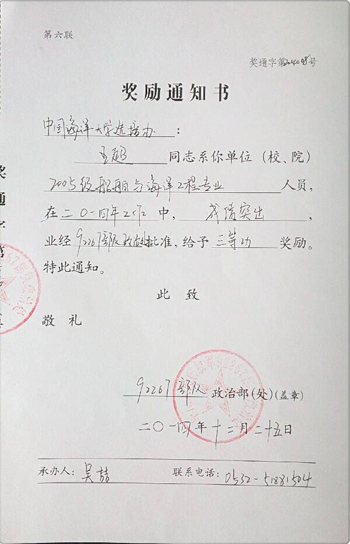 第六联
奖通字第 号
奖励通知书
中国海洋大学选培办：
同志系你单位（校、院）
2005级船舶与海洋工程专业 人员，
在二〇一四年工作中， 成绩突出 ，
业经92267部队 批准，给予 三等功 奖励。
特此通知。
此 致
敬 礼
92267部队 政治部（处）（盖章）
二〇一四年十二月二十五日
承办人：吴喆 联系电话：0532-51831504
奖通字第